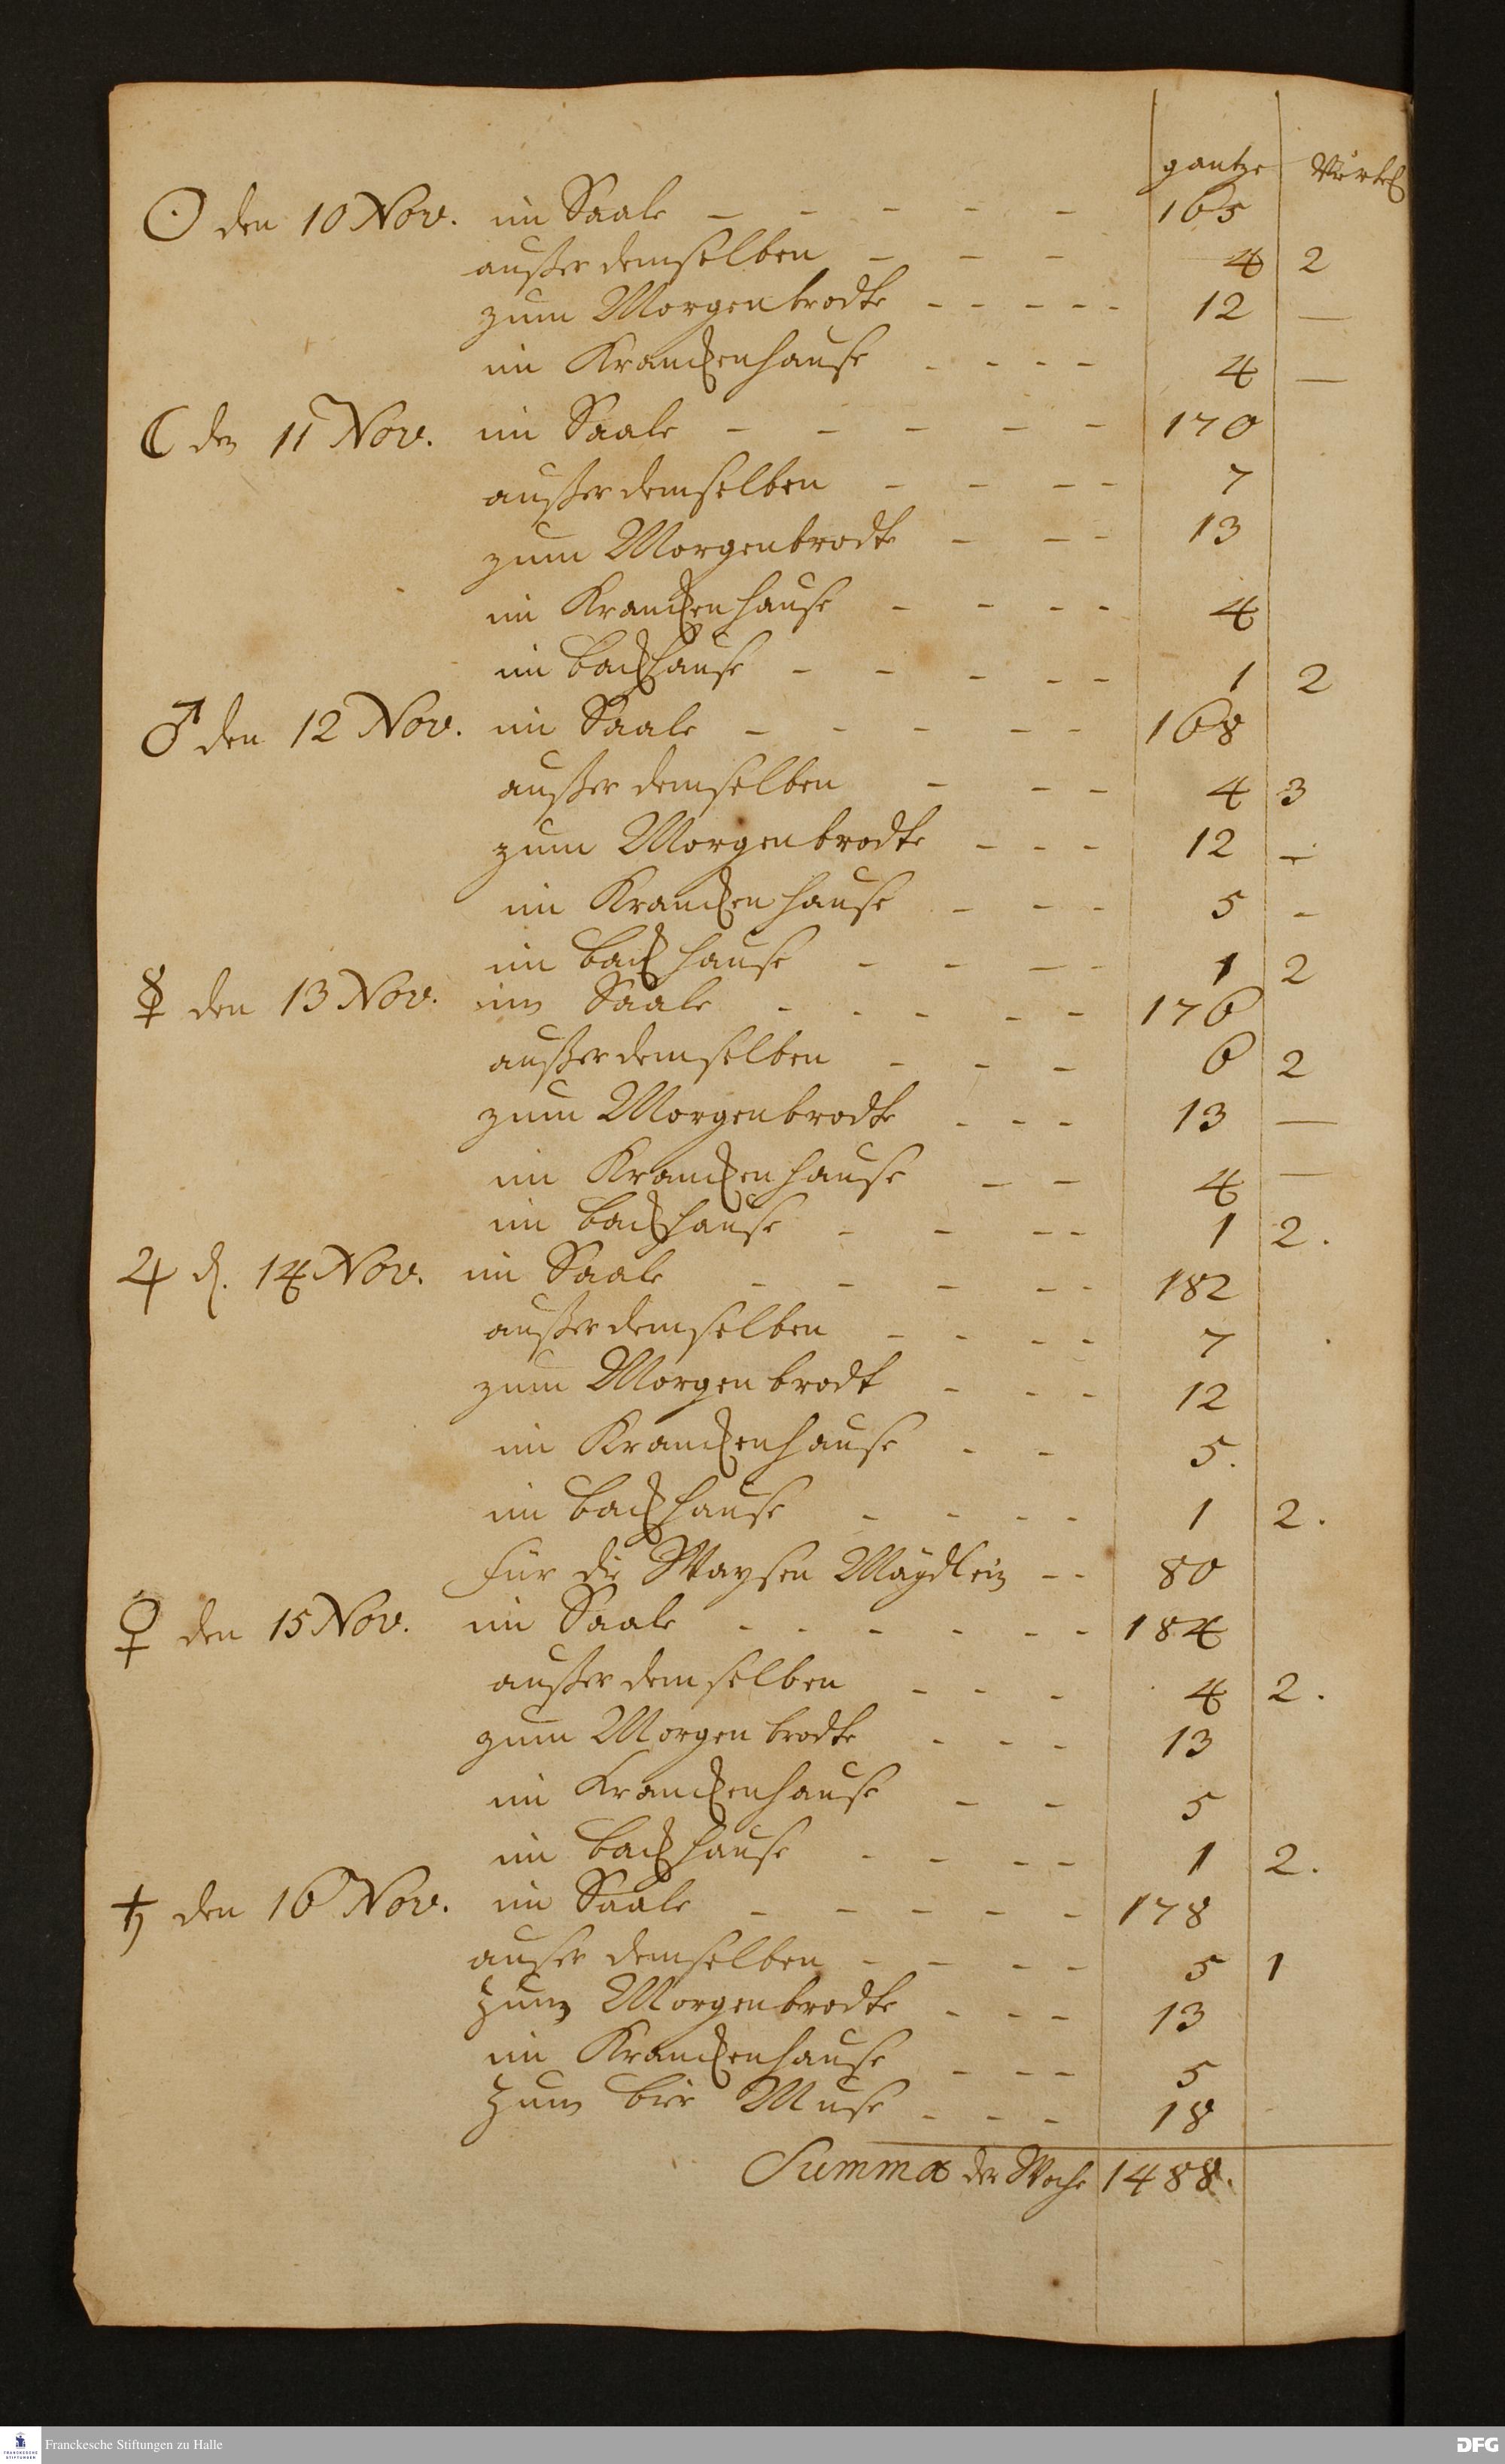 gantze Viertel
☉ den 10 Nov. im Saale – – – – – 165
außer demselben – – – 4 2
zum Morgenbrodte – – – – – 12 —
im Kranckenhause – – – – 4 —
☾ den 11 Nov. im Saale – – – – – 170
außer demselben – – – – 7
zum Morgenbrodte – – – 13
im Kranckenhause – – – – 4
im Backhause – – – – – 1 2
♂ den 12 Nov. im Saale – – – – – 168
außer demselben – – – 4 3
zum Morgenbrodte – – – 12 –
im Kranckenhause – – – 5 –
im Backhause – – – – 1 2
☿ den 13 Nov. im Saale – – – – – 176
außer demselben – – – 6 2
zum Morgenbrodte – – – 13 —
im Kranckenhause – – 4 —
im Backhause – – – – 1 2.
♃ d. 14 Nov. im Saale – – – – – 182
außer demselben – – – – 7
zum Morgenbrodt – – – 12
im Kranckenhause – – 5.
im Backhause – – – – 1 2.
Für die Waysen Mägdlein – – 80
♀ den 15 Nov. im Saale – – – – – – 184
außer demselben – – – 4 2.
zum Morgenbrodte – – – 13
im Kranckenhause – – 5
im Backhause – – – – 1 2.
♄ den 16 Nov. im Saale – – – – – 178
außer demselben – – – – 5 1
Zum Morgenbrodte – – – 13
im Kranckenhause – – – 5
Zum Bier Muse – – – 18
Summa der Woche 1488.
Franckesche Stiftungen zu Halle
FRANCKESCHE STIFTUNGEN
DFG